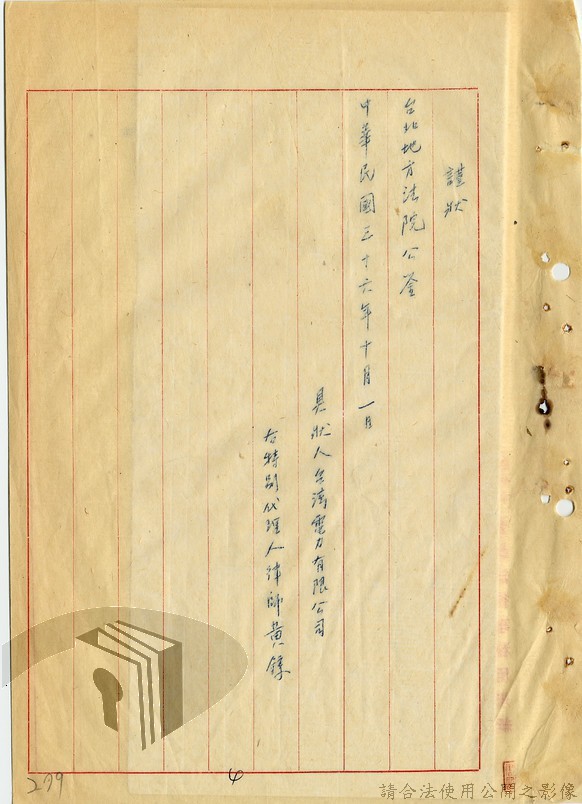 謹狀
台北地方法院公鑒
中華民國三十六年十月一日
具狀人台湾電力有限公司
右特別代理人律師黃
299
4
請合法使用公開之影像